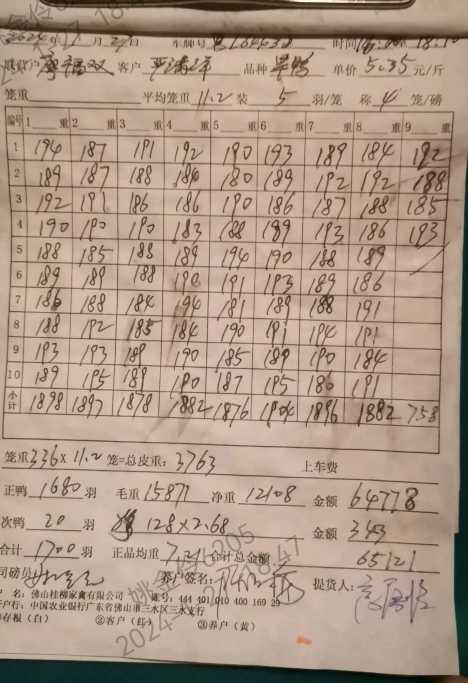 2024 月 日 车牌号 时间
客户 品种 单价 5.35 元/斤
笼重 平均笼重 11.2 装 5 羽/笼 称 4 笼/磅
编号 1 重 2 重 3 重 4 重 5 重 6 重 7 重 8 重 9 重
1 194 187 191 192 190 193 189 184 192
2 189 187 188 184 180 189 192 192 188
3 192 191 186 186 190 186 187 188 185
4 190 190 190 183 188 189 193 186 193
5 188 185 188 189 194 190 188 189
6 189 189 188 190 191 193 189 186
7 186 188 184 194 181 189 188 191
8 188 192 185 184 190 191 194 191
9 193 193 189 190 185 189 190 184
10 189 195 189 190 187 195 186 191
小计 1898 1897 1878 1882 1876 1904 1896 1882 758
笼重 336 x 11.2 笼=总皮重: 3763 上车费
正鸭 1680 羽 毛重 15871 净重 12108 金额 64778
次鸭 20 羽 128 x 2.68 金额 343
合计 1700 羽 正品均重 7.21 合计总金额 65121
司磅员 养户签名: 提货人:
户 名: 佛山桂柳家禽有限公司 账号: 444 401 010 400 169 29
开户行: 中国农业银行广东省佛山市三水区三水支行
①存根(白) ②客户(红) ③养户(黄)